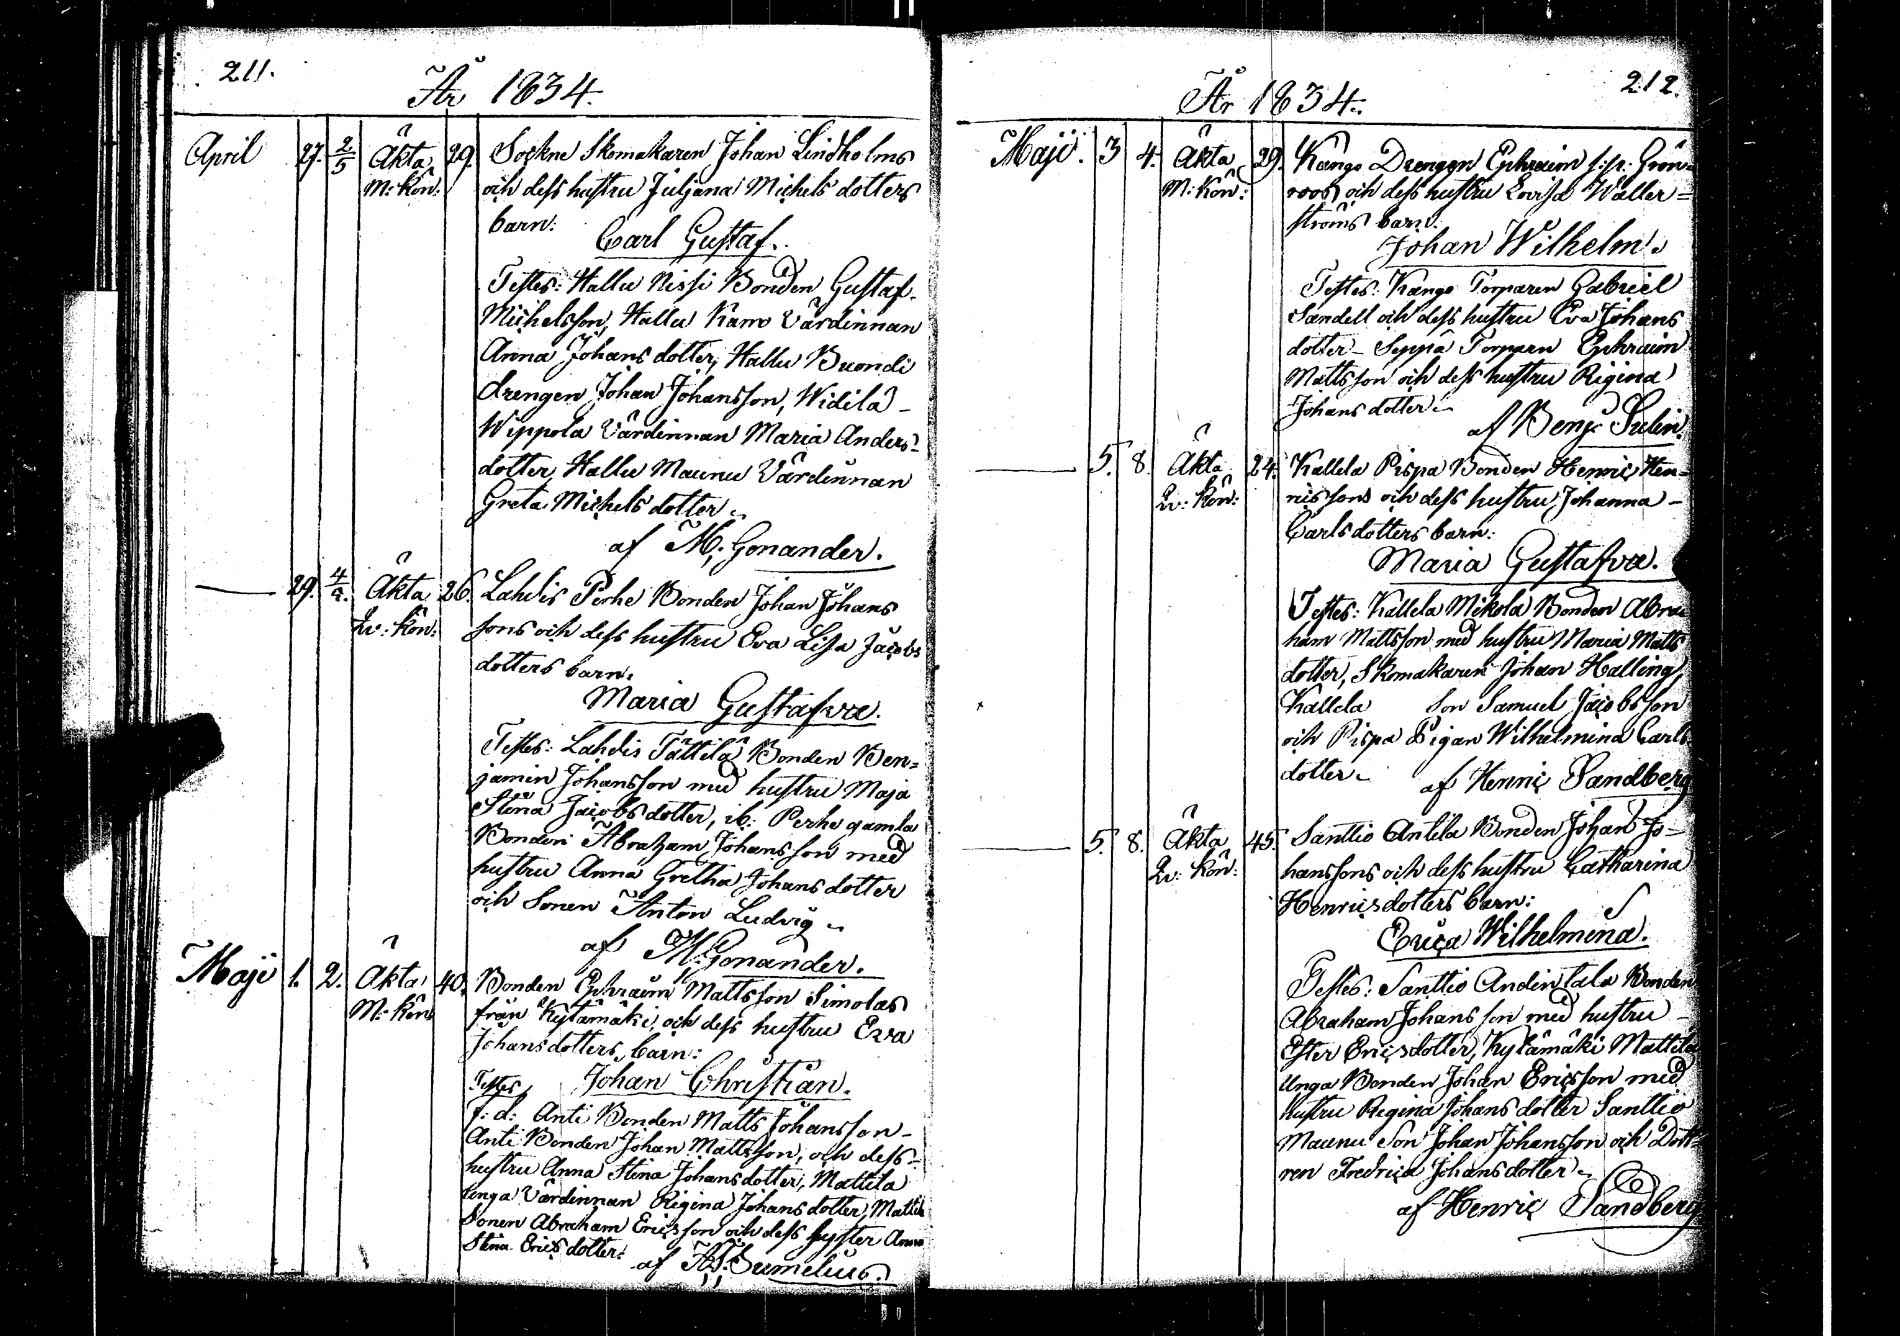 211.
År 1834.
April 27. 2/5 Äkta 29. Sockne Skomakaren Johan Lindholms
M: Kön: och dess hustru Juljana Michels dotters
barn:
Carl Gustaf.
Testes: Hallu Nissi Bonden Gustaf
Michelsson, Hallu Kamo Värdinnan
Anna Johans dotter, Hallu Buondi
drengen Johan Johansson, Widilä-
Wippola Värdinnan Maria Anders-
dotter, Hallu Maunu Värdinnan
Greta Michels dotter
af M. Gonander.
29. Äkta 26. Lahdis Perhe Bonden Johan Johans
Qv: Kön: sons och dess hustru Eva Lisa Jacobs
dotters barn:
Maria Gustafva.
Testes: Lahdis Tättilä Bonden Ben=
jamin Johansson med hustru Maja
Stina Jacobsdotter, ib: Perhe gamla
Bonden Abraham Johansson med
hustru Anna Gretha Johans dotter
och Sonen Anton Ludvig
af M. Gonander.
Maji 1. 2. Äkta 40. Bonden Ephraim Mattsson Simolas
M: Kön från Kytämäki, och dess hustru Eva
Johansdotters, barn:
Testes Johan Christian.
f: d: Anti Bonden Matts Johansson-
Anti Bonden Johan Mattsson, och dess-
hustru Anna Stina Johansdotter, Mattila
unga Värdinnan Regina Johans dotter, Mattila
Sonen Abraham Ericsson och dess syster Anna
Stina Erics dotter.
af
212.
År 1834.
Maji. 3 4. Äkta 29. Kango Drengen Ephraim Grön-
M: Kön: roos, och dess hustru Lovisa Waller=
ströms barn.
Johan Wilhelm.
Testes: Kango Torparen Gabriel
Sandell och dess hustru Eva Johans
dotter- Seppä Torparn Ephraim
Mattsson och dess hustru Regina
Johans dotter
af Benj:
5. 8. Äkta 24. Kallela Pispa Bonden Henric Hen-
Qv: Kön: rissons och dess hustru Johanna-
Carlsdotters barn:
Maria Gustafva.
Testes: Kallela Mikola Bonden Abra
ham Mattsson med hustru Maria Matts
dotter, Skomakaren Johan Halling,
Kallela son Samuel Jacobsson
och Pispa Pigan Wilhelmina Carls
dotter. af Henric Sandberg
5. 8. Äkta 45. Santtio Antila Bonden Johan Jo-
Qv: Kön: hanssons och dess hustru Catharina
Henricsdotters barn:
Erica Wilhelmina.
Testes: Santtio Andin tala Bonden
Abraham Johansson med hustru-
Ester Ericsdotter, Kytämäki Mattila
Unga Bonden Johan Ericsson med
hustru Regina Johans dotter Santtio
Maunu Son Johan Johansson och Dott-
ren Fredrica Johansdotter
af Henric Sandberg